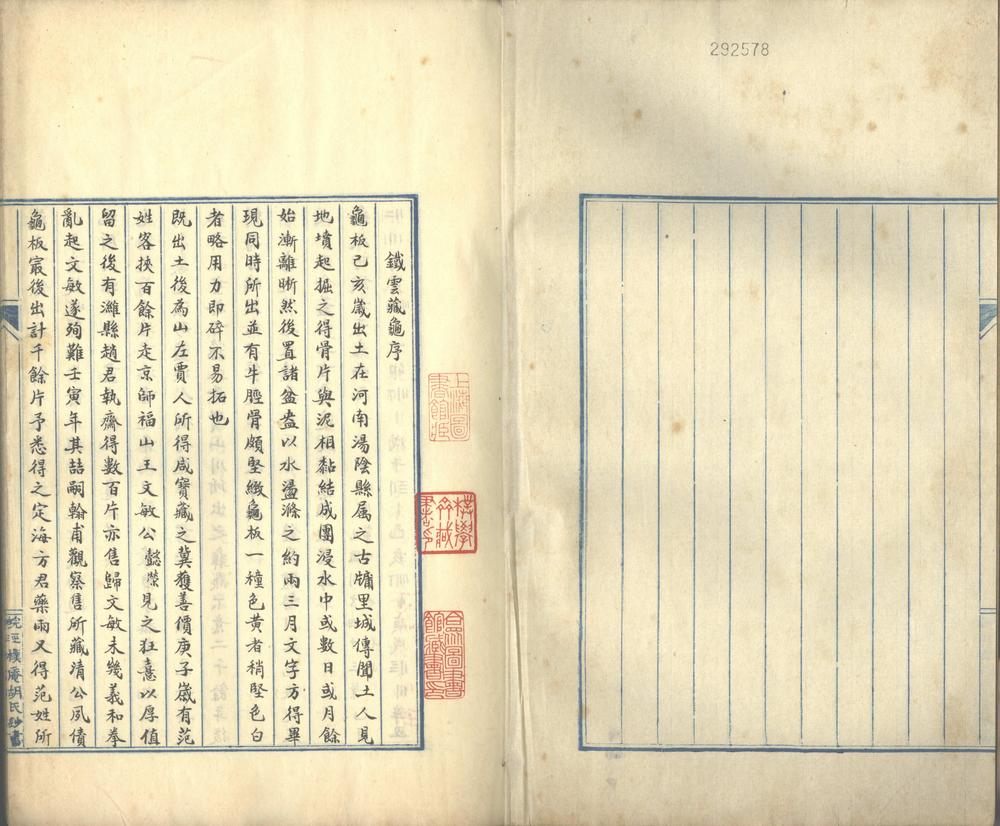 292578
鐵雲藏龜序
龜板己亥嵗出土在河南湯陰縣属之古牖里城傳聞土人見
地墳起掘之得骨片與泥相黏結成團浸水中或數日或月餘
始漸離晰然後置諸盆盎以水盪滌之約兩三月文字方得畢
現同時所出並有牛脛骨頗堅緻龜板一種色黄者稍堅色白
者略用力即碎不易拓也
既出土後為山左賈人所得咸寶藏之冀獲善價庚子嵗有范
姓客挾百餘片走京師福山王文敏公懿榮見之狂憙以厚值
留之後有濰縣趙君執齋得數百片亦售歸文敏未幾義和拳
亂起文敏遂殉難壬寅年其喆嗣翰甫觀察售所藏清公夙債
龜板㝡後出計千餘片予悉得之定海方君藥雨又得范姓所
皖涇樸庵胡氏鈔書
上海圖書館藏
樸學齋藏書
合眾圖書館藏書印